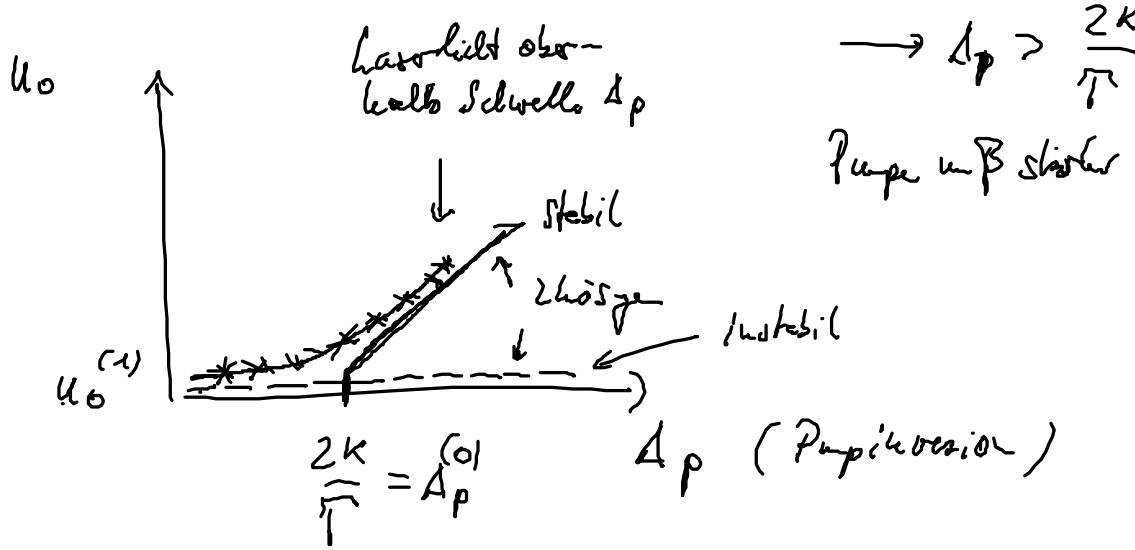 u₀
Laserlicht ober-
halb Schwelle Δp
→ Δp > 2κ/Γ
Pumpe muß stärker
stabil
2 Lösgen
instabil
u₀⁽¹⁾
2κ/Γ = Δp⁽⁰⁾
Δp (Pumpinversion)